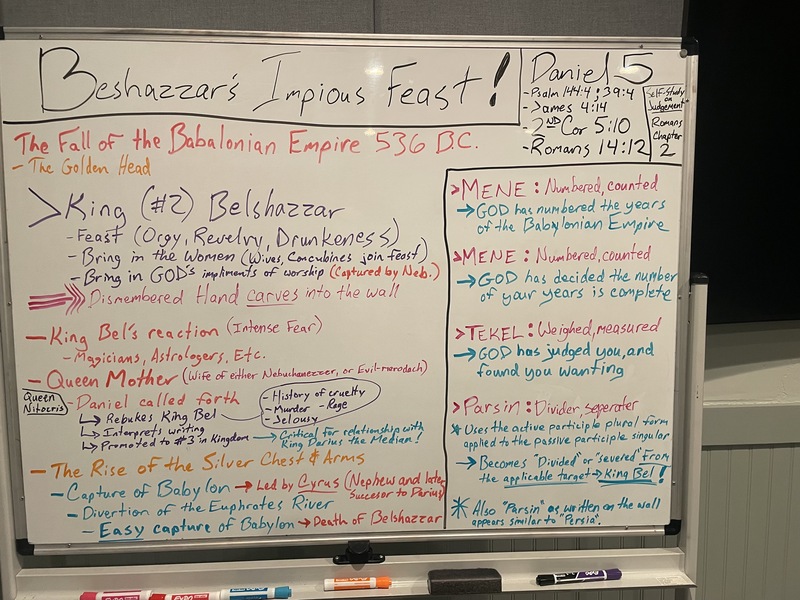 Beshazzar's Impious Feast!
Daniel 5
- Psalm 144:4; 39:4
- James 4:14
2ND Cor 5:10
- Romans 14:12
Self-Study
on
Judgement
Romans
Chapter
2
The Fall of the Babalonian Empire 536 BC.
- The Golden Head
> King (#2) Belshazzar
- Feast (Orgy, Revelry, Drunkeness)
- Bring in the Women (Wives, Concubines join feast)
- Bring in GOD's impliments of worship (Captured by Neb.)
Dismembered Hand carves into the wall
- King Bel's reaction (Intense Fear)
- Magicians, Astrologers, Etc.
- Queen Mother (Wife of either Nebuchanezzer, or Evil-merodach)
Queen
Nitocris
- Daniel called forth
↳ Rebukes King Bel
- History of cruelty
- Murder - Rage
- Jelousy
↳ Interprets writing
↳ Promoted to #3 in Kingdom → Critical for relationship with
King Darius the Median!
- The Rise of the Silver Chest & Arms
- Capture of Babylon → Led by Cyrus (Nephew and later
Succesor to Darius)
- Divertion of the Euphrates River
- Easy capture of Babylon → Death of Belshazzar
> MENE: Numbered, counted
→ GOD has numbered the years
of the Babylonian Empire
> MENE: Numbered, counted
→ GOD has decided the number
of your years is complete
> TEKEL: Weighed, measured
→ GOD has judged you, and
found you wanting
> Parsin: Divider, seperater
* Uses the active participle plural form
applied to the passive participle singular
→ Becomes "Divided" or "severed" from
the applicable target → King Bel!
* Also "Parsin" as written on the wall
appears similar to "Persia".
EXPO
EXPO